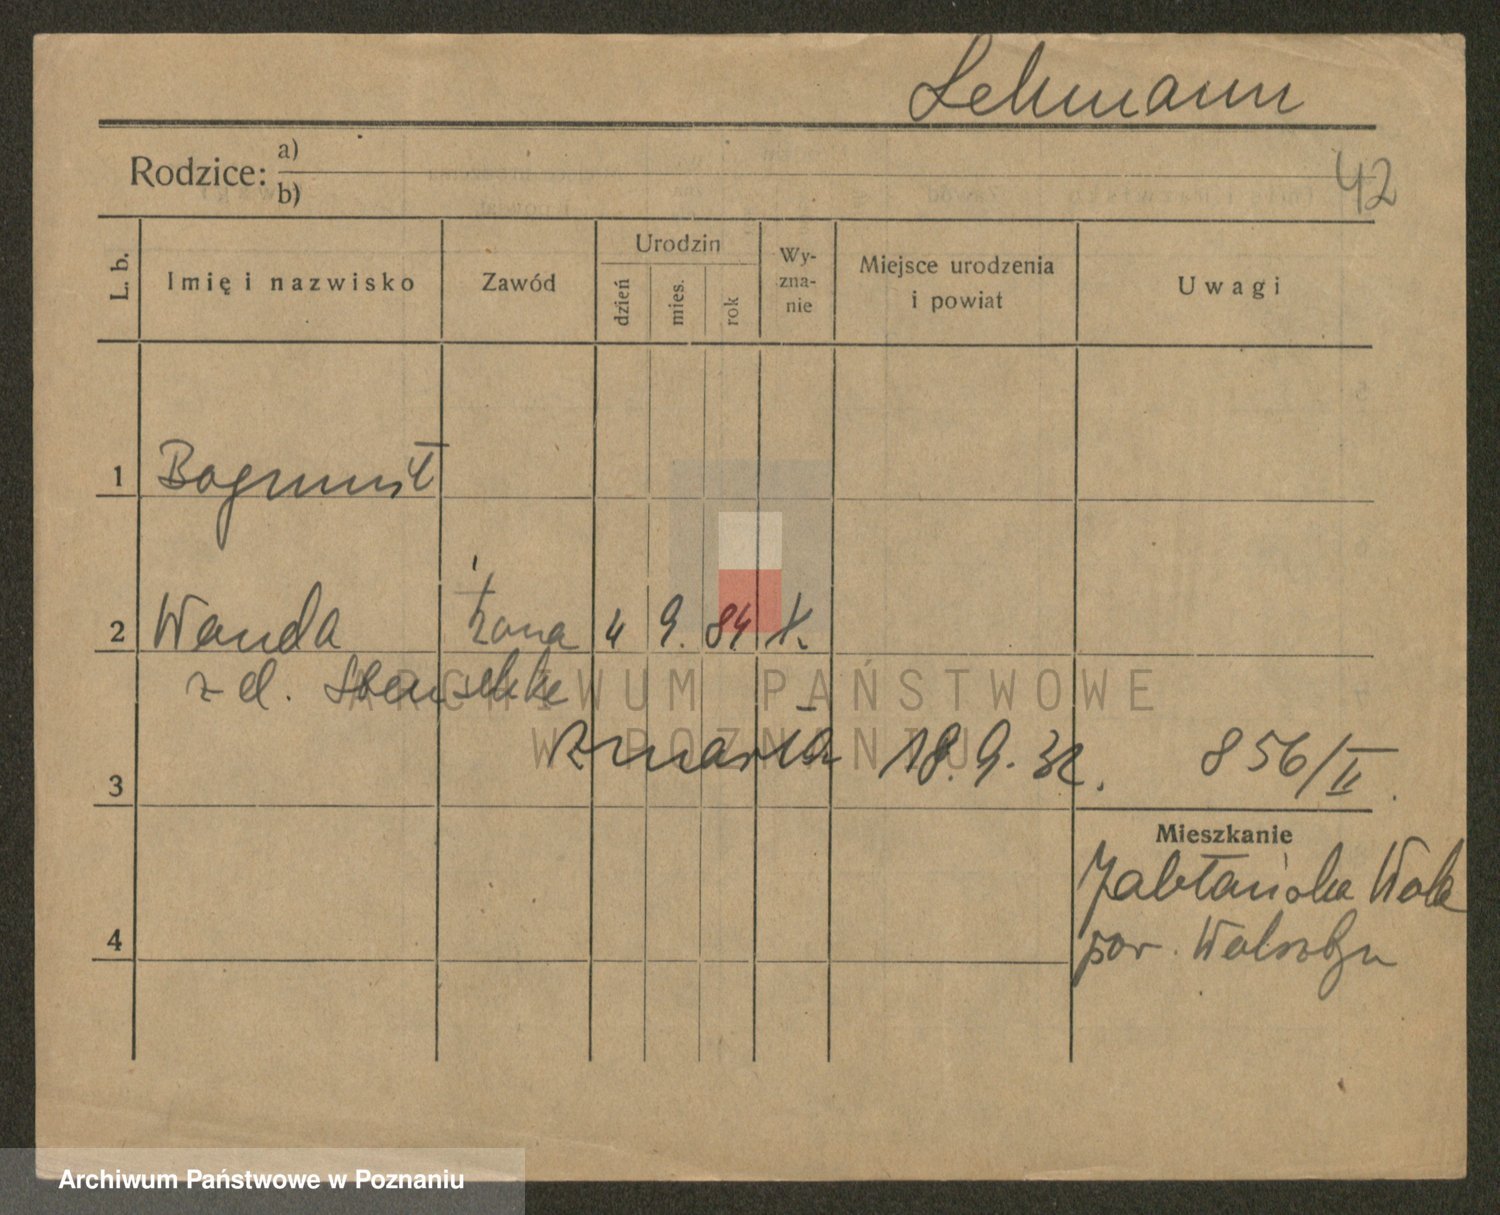 Lehmann
Rodzice: a)
b)
42
L. b.
Imię i nazwisko
Zawód
Urodzin
dzień
mies.
rok
Wy-
zna-
nie
Miejsce urodzenia
i powiat
Uwagi
1 Bogumił
2 Wanda żona 4 9. 84 k.
z d.
ARCHIWUM PAŃSTWOWE
W POZNANIU
zmarła 18. 9. 32. 856/II.
3
Mieszkanie
Wola
4
pow.
Archiwum Państwowe w Poznaniu